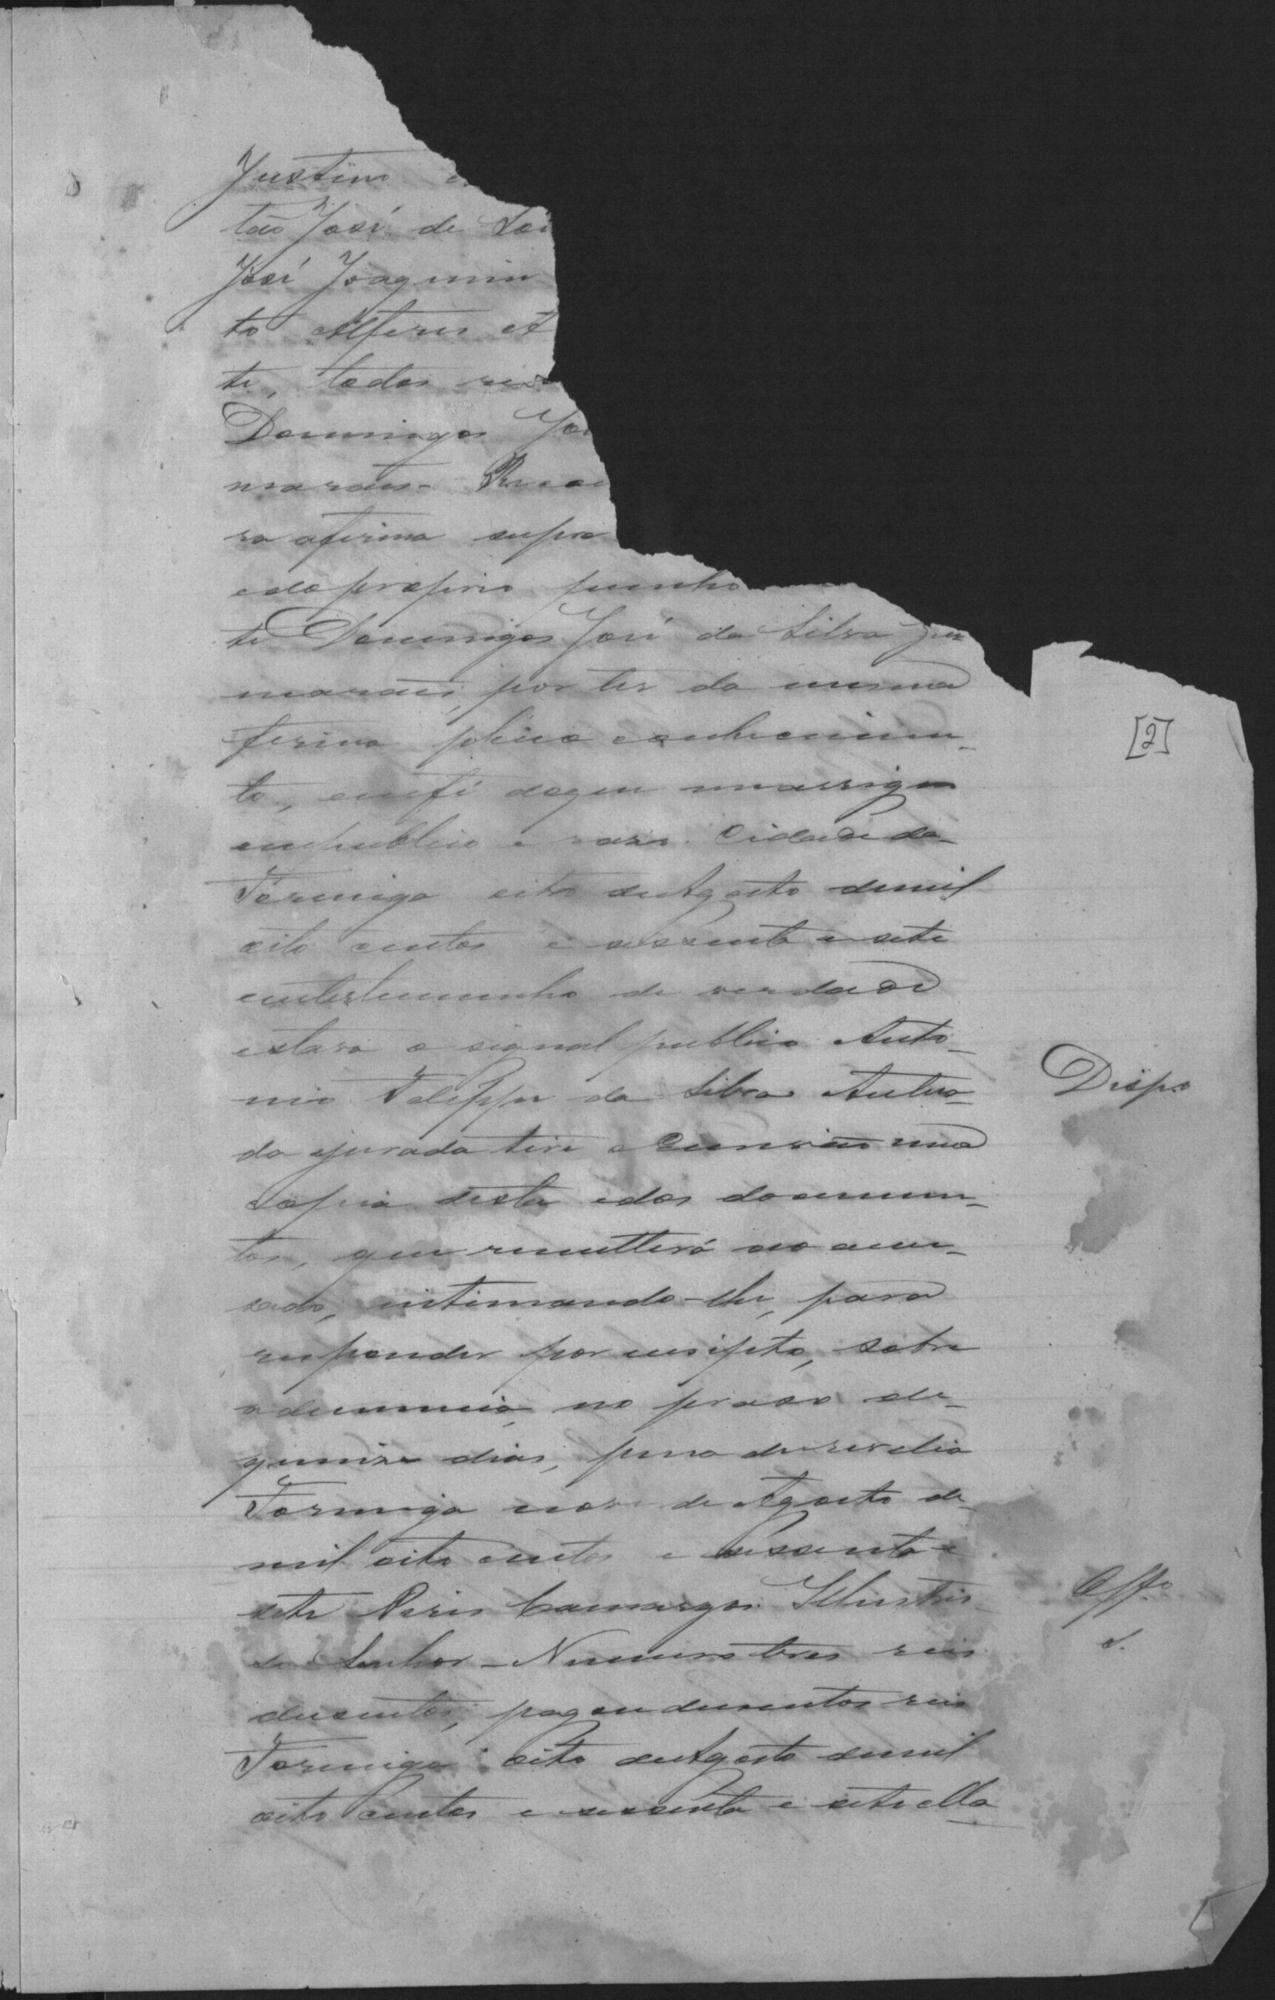 Justino
tão José de Sou
José Joaquim
to Alferes A
te, todos res
Domingos Jos
marães. Recon
ro afirma supra
edoproprio punho
te Domingos José da Silva Gui
marães, por ter da mesma
firma pleno conhecimen-
to, emfé doque meassigno
empublico e raso. Cidade da
Formiga oito deAgosto demil
oito centos e sessenta e sete
emtestemunho de verdade
estava o signal publico Anto-
nio Felippe da Silva Autua-
da ejurada tire o Escrivão uma
copia desta edos documen-
tos, que remetterá ao accu-
sado, intimando-lhe, para
responder por escripto, sobre
adenuncia, no praso de
quinze dias, pena derevelia
[2]
Dispo
Formiga nove de Agosto de
mil oito centos e sessenta e
sete Pires Camargos. Illustris-
so Senhor - Numero tres reis
dusentos, pagou dusentos reis
Formiga oito deAgosto demil
oito centos e sessenta e sete ella
Offo